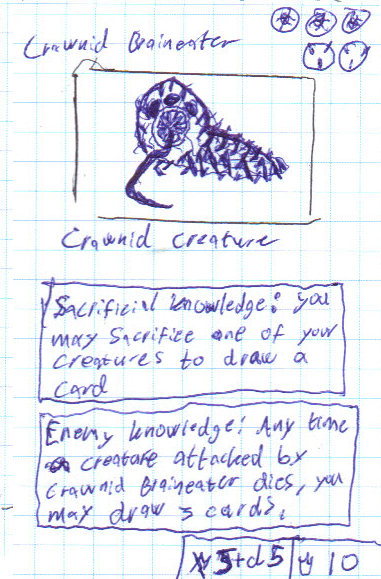 Crawnid Braineater
Crawnid Creature
Sacrificial knowledge: you
may Sacrifice one of your
creatures to draw a
card
Enemy knowledge: Any time
creature attacked by
Crawnid Braineater dies, you
may draw 3 cards.
5+d5 10